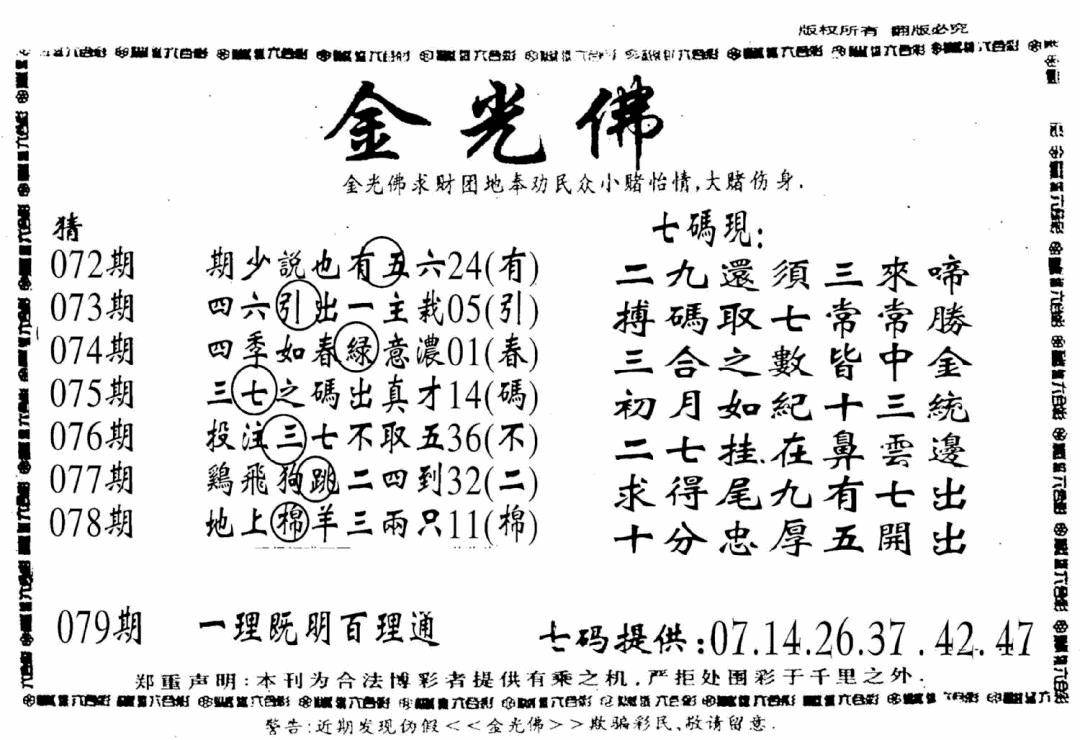 版权所有 翻版必究
金光佛
金光佛求财团地奉劝民众小赌怡情,大赌伤身.
猜
072期 期少說也有五六24(有)
073期 四六引出一主栽05(引)
074期 四季如春綠意濃01(春)
075期 三七之碼出真才14(碼)
076期 投注三七不取五36(不)
077期 鷄飛狗跳二四到32(二)
078期 地上棉羊三兩只11(棉)
七碼現:
二九還須三來啼
搏碼取七常常勝
三合之數皆中金
初月如紀十三統
二七挂在鼻雲邊
求得尾九有七出
十分忠厚五開出
079期 一理既明百理通
七码提供:07.14.26.37.42.47
郑重声明:本刊为合法博彩者提供有乘之机,严拒处围彩于千里之外.
警告:近期发现伪假<<金光佛>>欺骗彩民,敬请留意.